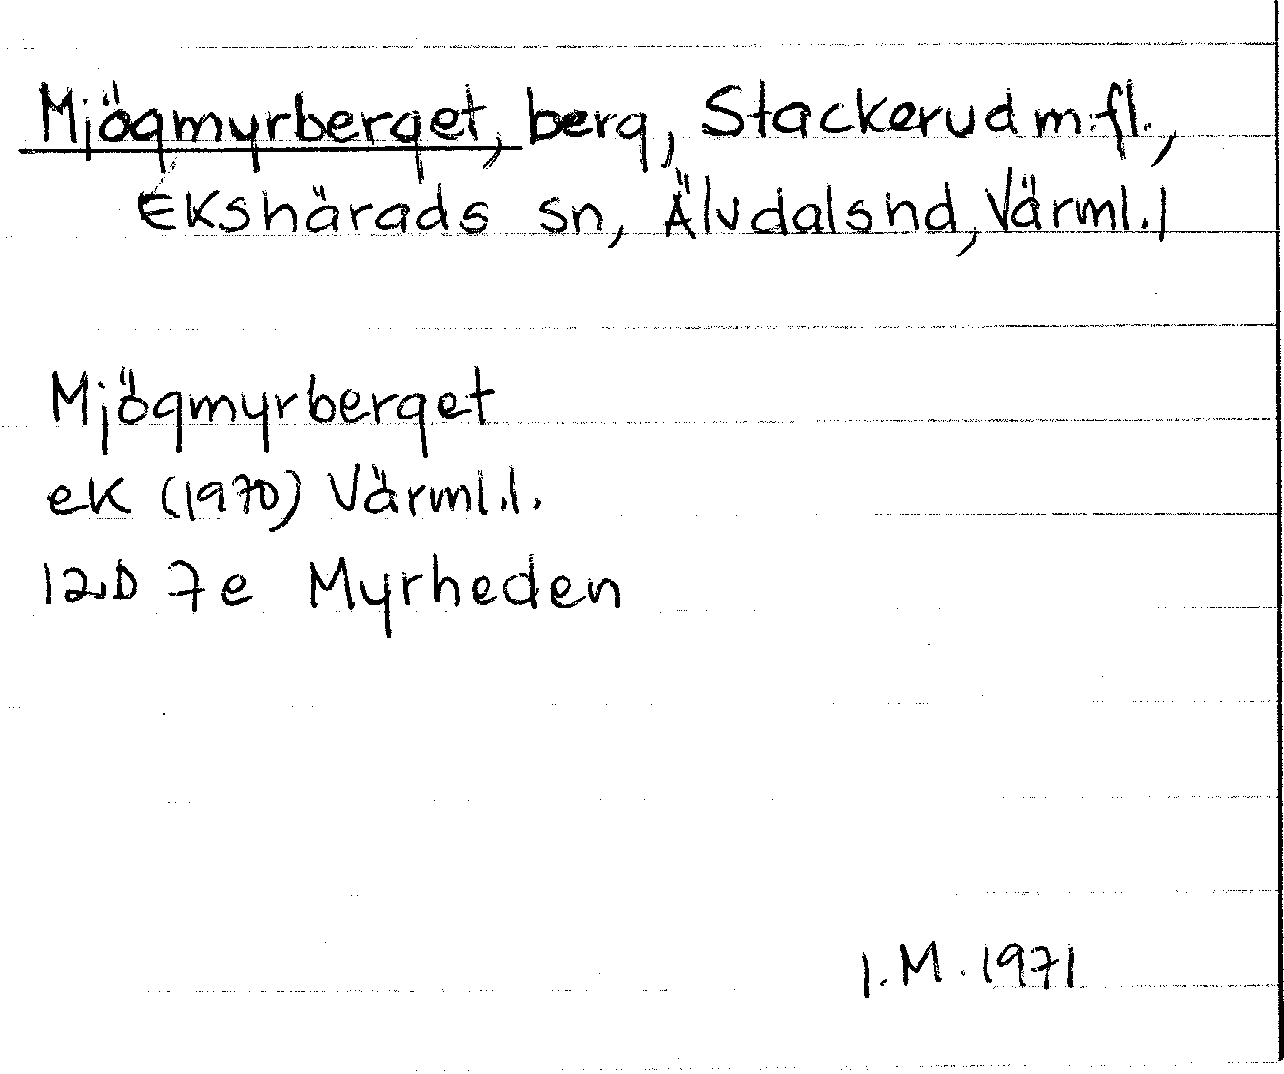 Mjögmyrberget, berg, Stackerud m.fl.,
Ekshärads sn, Älvdals hd, Värml. l
Mjögmyrberget
ek (1970) Värml.l.
12D 7e Myrheden
I.M. 1971